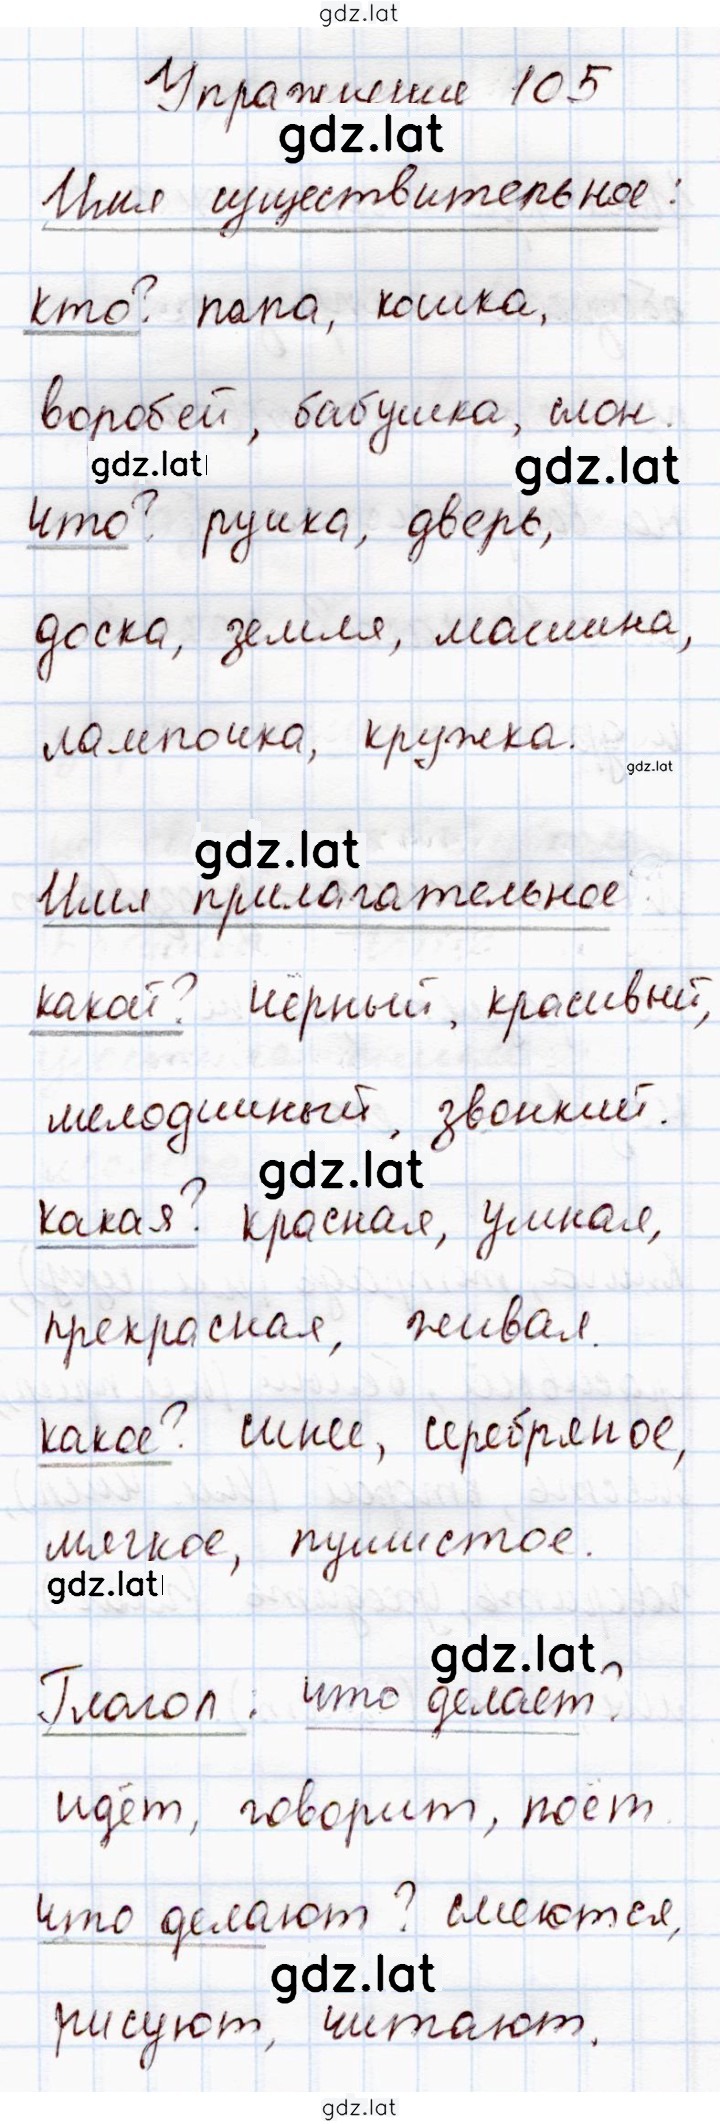 gdz.lat
Упражнение 105
gdz.lat
Имя существительное:
кто? папа, кошка,
воробей, бабушка, слон.
gdz.lat gdz.lat
что? ручка, дверь,
доска, земля, машина,
лампочка, кружка.
gdz.lat
gdz.lat
Имя прилагательное:
какой? чёрный, красивый,
мелодичный, звонкий.
gdz.lat
какая? красная, умная,
прекрасная, живая.
какое? синее, серебряное,
мягкое, пушистое.
gdz.lat
gdz.lat
Глагол: что делает?
идёт, говорит, поёт.
что делают? смеются,
gdz.lat
рисуют, читают.
gdz.lat